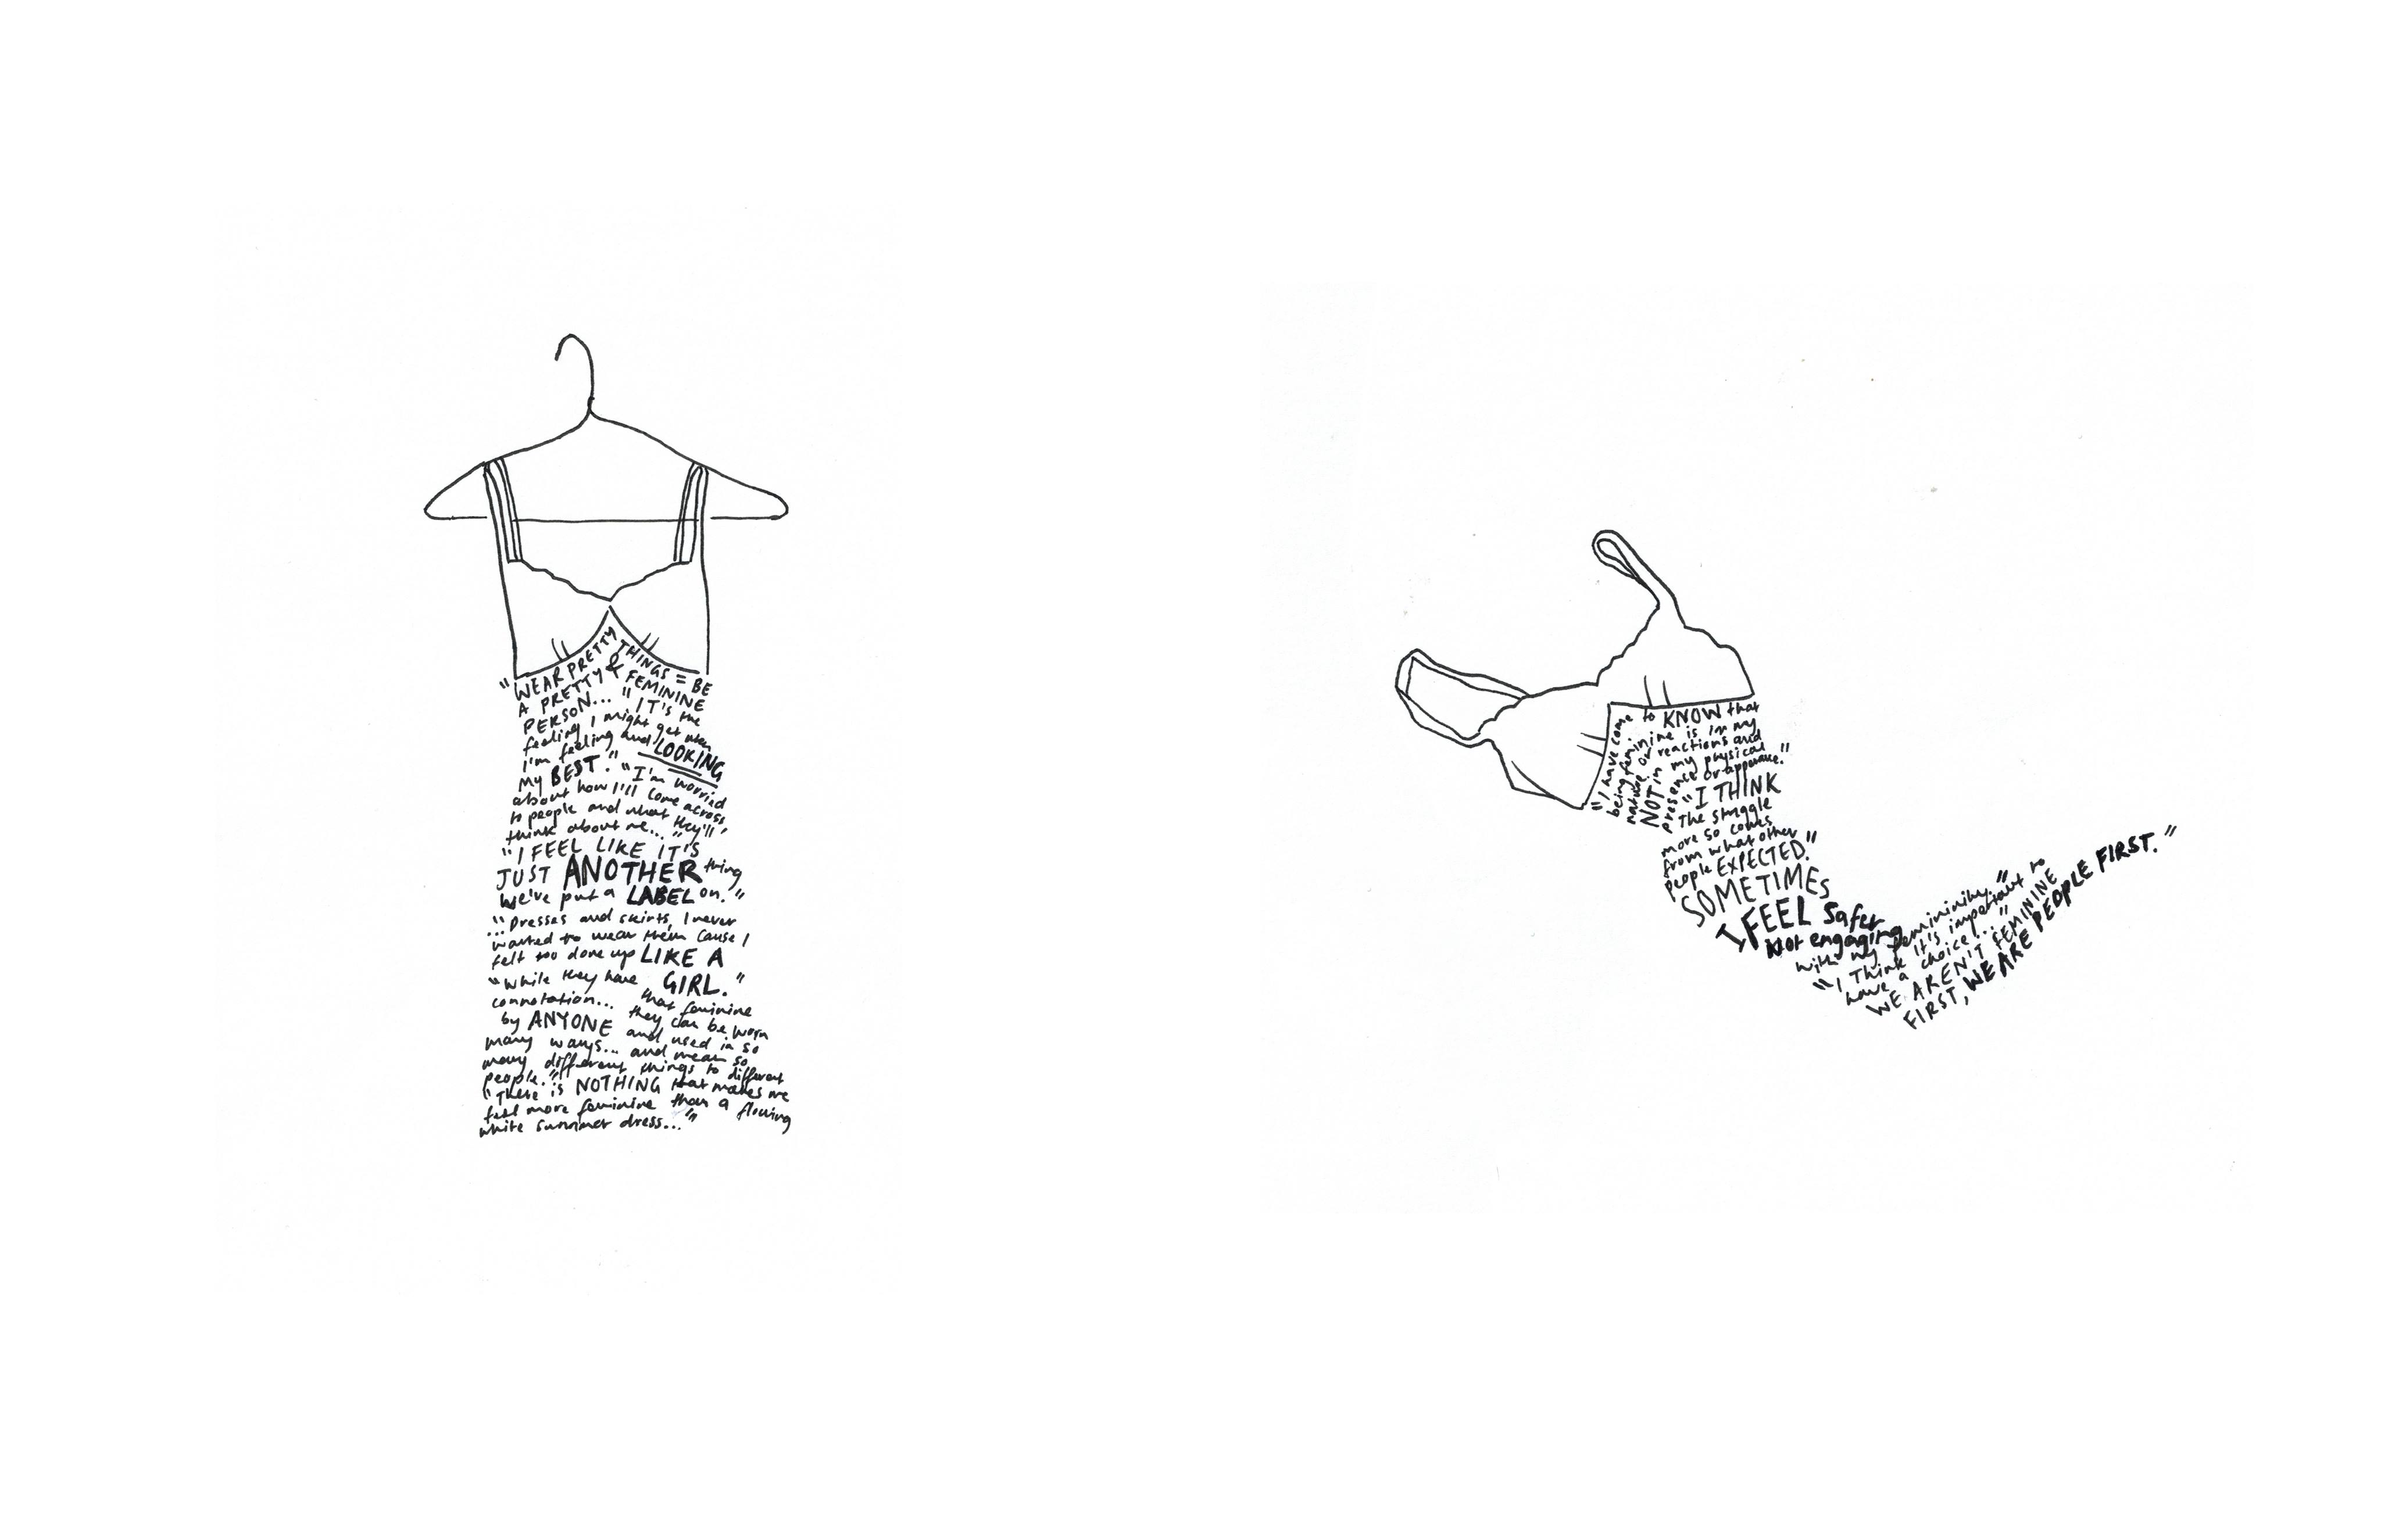 "WEAR PRETTY THINGS = BE
A PRETTY & FEMININE
PERSON... "IT's the
feeling I might get when
I'm feeling and LOOKING
My BEST." "I'm worried
about how I'll come across
to people and what they'll
think about me..."
"I FEEL LIKE IT'S
JUST ANOTHER thing
we've put a LABEL on."
"...Dresses and skirts, I never
wanted to wear them cause I
felt too done up LIKE A
GIRL."
"While they have that feminine
connotation... they can be worn
by ANYONE and used in so
many ways... and mean so
many different things to different
people."
"There is NOTHING that makes me
feel more feminine than a flowing
white summer dress..."
"I have come to KNOW that
being feminine is in my
nature or reactions and
NOT in my physical
presence or appearance."
"I THINK
The struggle
more so comes
from what other
people EXPECTED."
SOMETIMES
I FEEL Safer
Not engaging
with my femininity."
"I Think it's important to
have a choice..."
WE AREN'T FEMININE
FIRST, WE ARE PEOPLE FIRST."